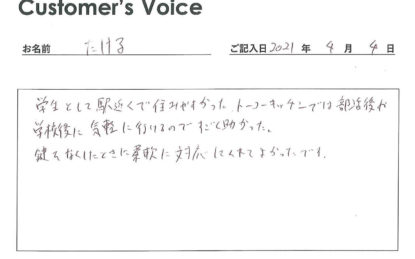 Customer's Voice
お名前 たける ご記入日 2021 年 4 月 4 日
学生として駅近くで住みやすかった。トーコーキッチンでは部活後や
学校後に気軽に行けるのですごく助かった。
鍵をなくしたときに柔軟に対応してくれてよかったです。